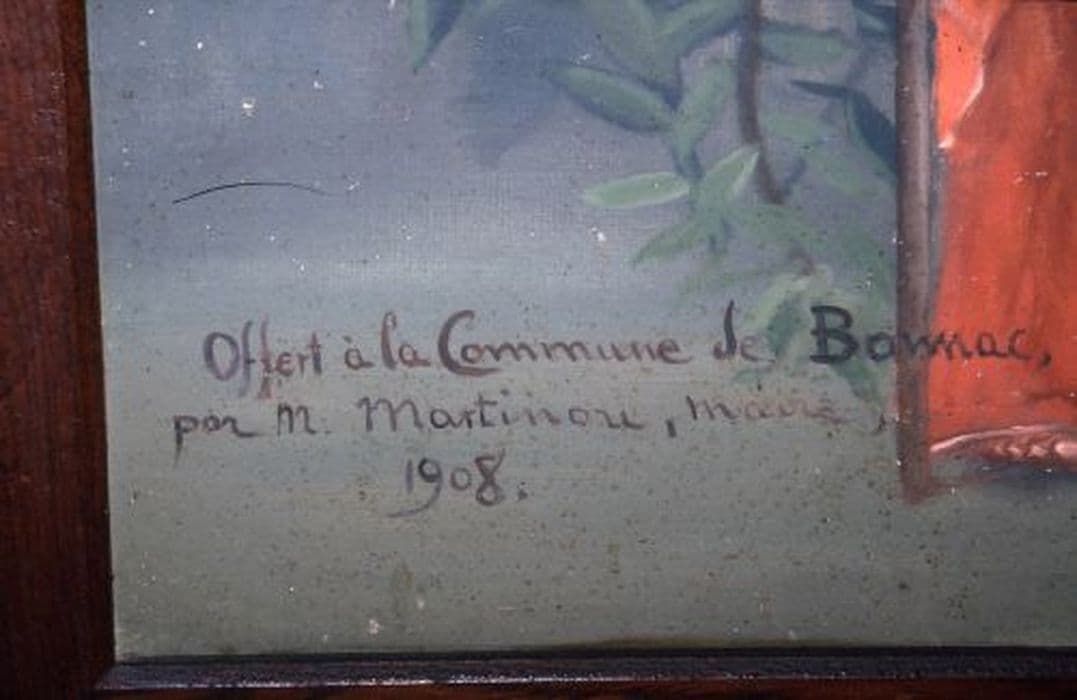 Offert à la Commune de Bonnac,
par M. Martinon, maire,
1908.